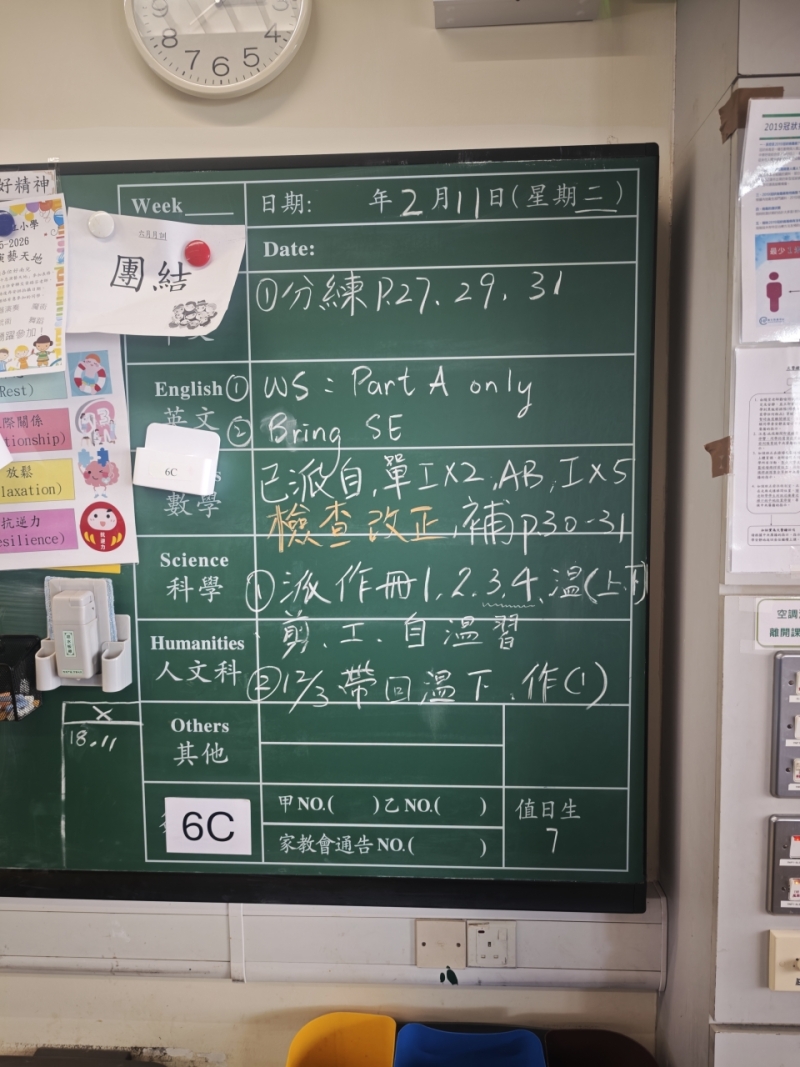 8 7 6 5 4
好精神
小學
5-2026
演藝天地
踴躍參加！
團結
Rest)
際關係
tionship)
放鬆
axation)
抗逆力
silience)
6C
Week
日期: 年2月11日(星期三)
Date:
①分練P.27、29、31
English① WS : Part A only
英文② Bring SE
數學
已派自,單工X2,AB,工X5
檢查改正,補p30-31
Science
科學
①派作冊1,2,3,4、溫(上,下)
剪、工、自溫習
Humanities
人文科
②12/3帶回溫下、作(1)
X
18.11
Others
其他
6C
甲NO.( )乙NO.( )
家教會通告NO.( )
值日生
7
2019冠狀
最少
空調
離開課